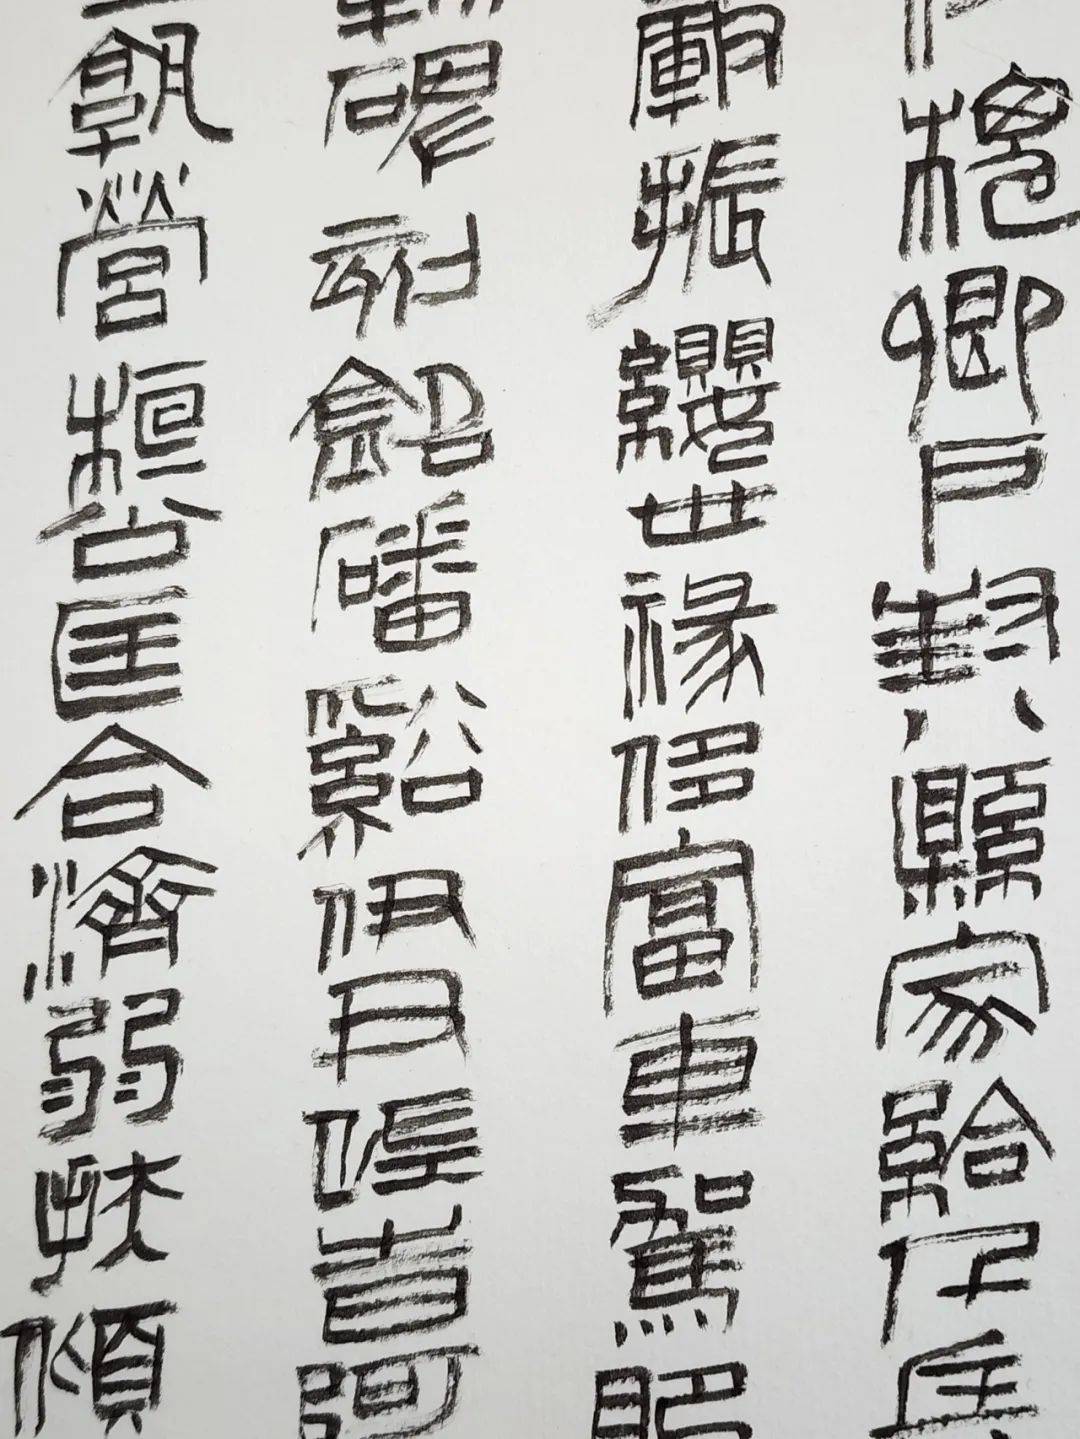 槐卿户封八縣家給千兵
驅振纓世禄侈富車駕肥
輕碑刻銘磻谿伊尹時奄阿
孰營桓公匡合濟弱扶傾